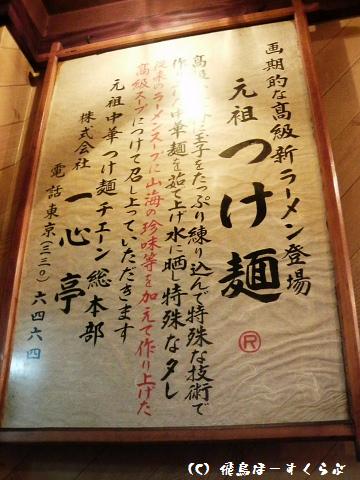 画期的な高級新ラーメン登場
元祖 つけ麺
R
高級 玉子をたっぷり練り込んで特殊な技術で
作り 中華麺を茹で上げ水に晒し特殊なタレ
従来のラーメンスープに山海の珍味等を加えて作り上げた
高級スープにつけて召し上っていただきます
元祖中華つけ麺チエーン総本部
株式会社 一心亭
電話東京(三三〇)六四六四
(C) 飛鳥ほーすくらぶ